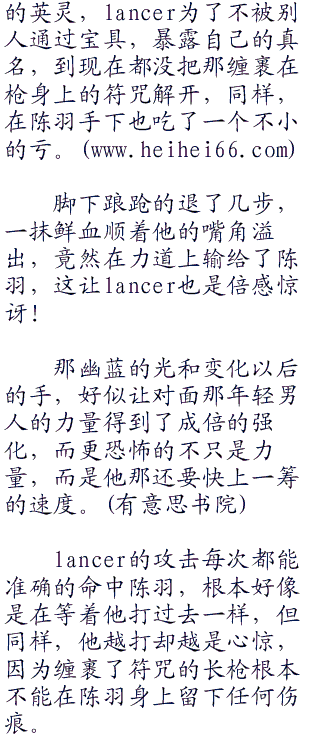 的英灵，lancer为了不被别
人通过宝具，暴露自己的真
名，到现在都没把那缠裹在
枪身上的符咒解开，同样，
在陈羽手下也吃了一个不小
的亏。(www.heihei66.com)
脚下踉跄的退了几步，
一抹鲜血顺着他的嘴角溢
出，竟然在力道上输给了陈
羽，这让lancer也是倍感惊
讶！
那幽蓝的光和变化以后
的手，好似让对面那年轻男
人的力量得到了成倍的强
化，而更恐怖的不只是力
量，而是他那还要快上一筹
的速度。(有意思书院)
lancer的攻击每次都能
准确的命中陈羽，根本好像
是在等着他打过去一样，但
同样，他越打却越是心惊，
因为缠裹了符咒的长枪根本
不能在陈羽身上留下任何伤
痕。